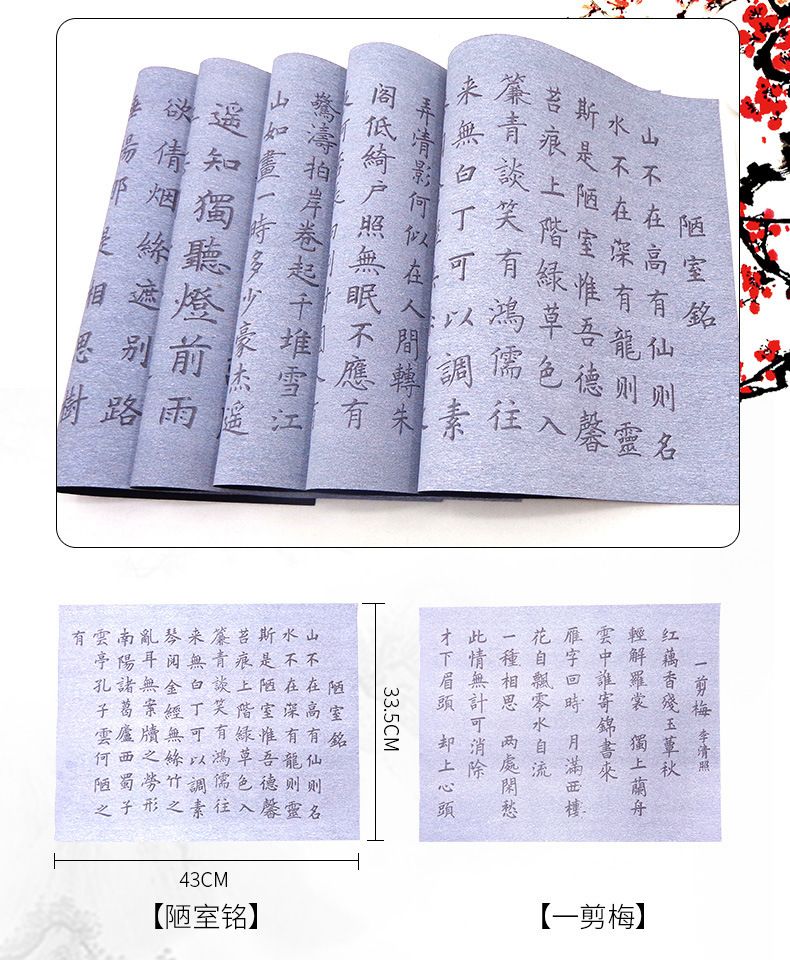 陋室銘
山不在高有仙则名
水不在深有龍则靈
斯是陋室惟吾德馨
苔痕上階緑草色入
簾青談笑有鴻儒往
来無白丁可以調素
弄清影何似在人間轉朱
阁低綺户照無眠不應有
驚濤拍岸卷起千堆雪江
山如畫一時多少豪杰遥
遥知獨聽燈前雨
欲倩烟絲遮别路
楊那是相思樹
陋室銘
山不在高有仙则名
水不在深有龍则靈
斯是陋室惟吾德馨
苔痕上階緑草色入
簾青談笑有鴻儒往
来無白丁可以調素
琴阅金經無絲竹之
亂耳無案牘之勞形
南陽諸葛廬西蜀子
雲亭孔子雲何陋之
有
33.5CM
43CM
【陋室铭】
一剪梅 李清照
红藕香殘玉蕈秋
輕解羅裳 獨上蘭舟
雲中誰寄錦書來
雁字回時 月滿西樓
花自飄零水自流
一種相思 两處閑愁
此情無計可消除
才下眉頭 却上心頭
【一剪梅】